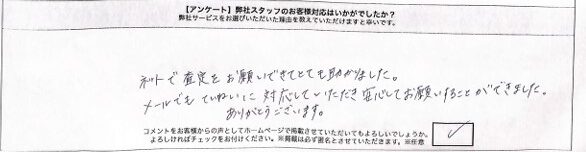 【アンケート】弊社スタッフのお客様対応はいかがでしたか？
弊社サービスをお選びいただいた理由を教えていただけますと幸いです。
ネットで査定をお願いできてとても助かりました。
メールでもていねいに対応していただき安心してお願いすることができました。
ありがとうございます。
コメントをお客様からの声としてホームページで掲載させていただいてもよろしいでしょうか。
よろしければチェックをお付けください。※掲載は必ず匿名とさせていただきます。※任意
✓